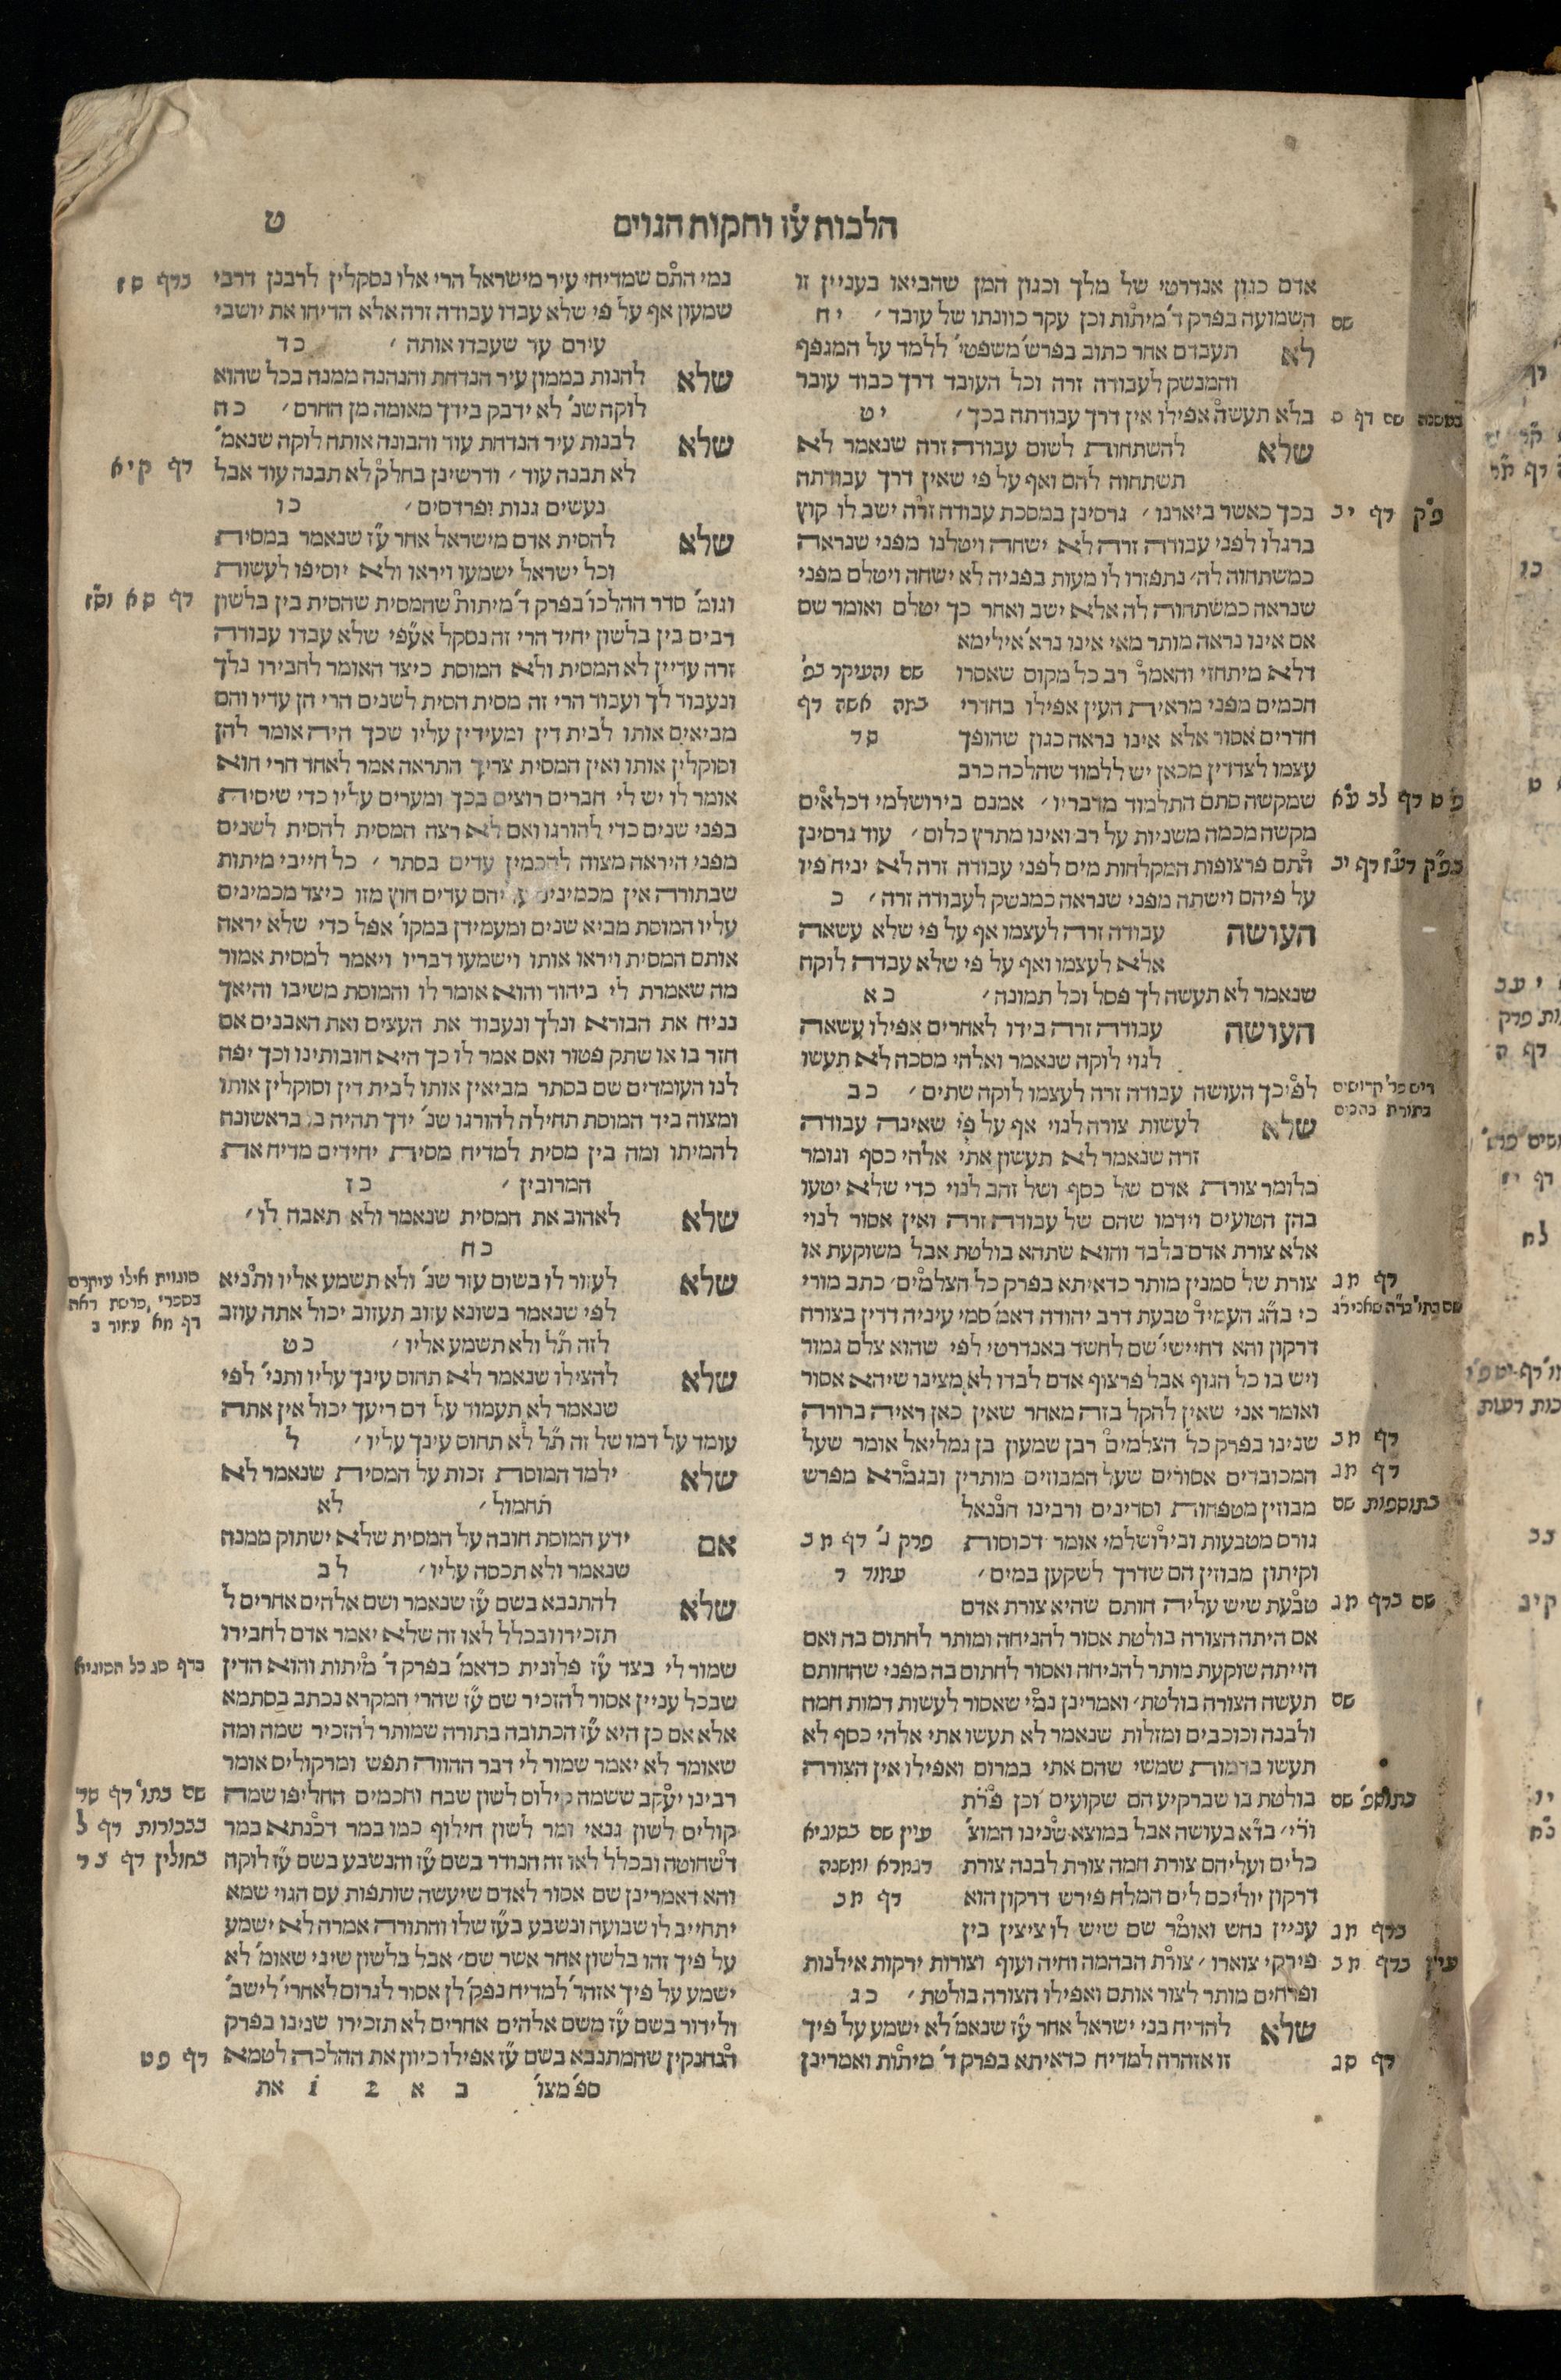 הלכות ע״ז וחקות הגוים
ט
אדם כגון אנדרטי של מלך וכגון המן שהביאו בעניין זו
השמועה בפרק ד׳ מיתות וכן עקר כוונתו של עובד׳ יח
לא תעבדם אחר כתוב בפרש׳ משפטי׳ ללמד על המגפף
והמנשק לעבודה זרה וכל העובד דרך כבוד עובר
בלא תעשה אפילו אין דרך עבודתה בכך׳ יט
שלא להשתחות לשום עבודה זרה שנאמר לא
תשתחוה להם ואף על פי שאין דרך עבודתה
בכך כאשר ביארנו׳ גרסינן במסכת עבודה זרה ישב לו קוץ
ברגלו לפני עבודה זרה לא ישחה ויטלנו מפני שנראה
כמשתחוה לה׳ נתפזרו לו מעות בפניה לא ישחה ויטלם מפני
שנראה כמשתחוה לה אלא ישב ואחר כך יטלם ואומר שם
אם אינו נראה מותר מאי אינו נרא׳ אילימא
דלא מיתחזי והאמר רב כל מקום שאסרו
חכמים מפני מראית העין אפילו בחדרי
חדרים אסור אלא אינו נראה כגון שהופך
עצמו לצדדין מכאן יש ללמוד שהלכה כרב
שמקשה סתם התלמוד מדבריו׳ אמנם בירושלמי דכלאים
מקשה מכמה משניות על רב ואינו מתרץ כלום׳ עוד גרסינן
התם פרצופות המקלחות מים לפני עבודה זרה לא יניח פיו
על פיהם וישתה מפני שנראה כמנשק לעבודה זרה׳ כ
העושה עבודה זרה לעצמו אף על פי שלא עשאה
אלא לעצמו ואף על פי שלא עבדה לוקה
שנאמר לא תעשה לך פסל וכל תמונה׳ כא
העושה עבודה זרה בידו לאחרים אפילו עשאה
לגוי לוקה שנאמר ואלהי מסכה לא תעשו
לפיכך העושה עבודה זרה לעצמו לוקה שתים׳ כב
שלא לעשות צורה לנוי אף על פי שאינה עבודה
זרה שנאמר לא תעשון אתי אלהי כסף וגומר
כלומר צורת אדם של כסף ושל זהב לנוי כדי שלא יטעו
בהן הטועים וידמו שהם של עבודה זרה ואין אסור לנוי
אלא צורת אדם בלבד והוא שתהא בולטת אבל משוקעת או
צורת של סמנין מותר כדאיתא בפרק כל הצלמים׳ כתב מורי
כי בה״ג העמיד טבעת דרב יהודה דאמ׳ סמי עיניה דדין בצורת
דרקון והא דחיישי׳ שם לחשד באנדרטי לפי שהוא צלם גמור
ויש בו כל הגוף אבל פרצוף אדם לבדו לא מצינו שיהא אסור
ואומר אני שאין להקל בזה מאחר שאין כאן ראיה ברורה
שנינו בפרק כל הצלמים רבן שמעון בן גמליאל אומר שעל
המכובדים אסורים שעל המבוזים מותרין ובגמרא מפרש
מבוזין מטפחות וסדינים ורבינו חננאל
גורס מטבעות ובירושלמי אומר דכוסות
וקיתון מבוזין הם שדרך לשקען במים׳
טבעת שיש עליה חותם שהיא צורת אדם
אם היתה הצורה בולטת אסור להניחה ומותר לחתום בה ואם
הייתה שוקעת מותר להניחה ואסור לחתום בה מפני שהחותם
תעשה הצורה בולטת׳ ואמרינן נמי שאסור לעשות דמות חמה
ולבנה וכוכבים ומזלות שנאמר לא תעשו אתי אלהי כסף לא
תעשו כדמות שמשי שהם אתי במרום ואפילו אין הצורה
בולטת בו שברקיע הם שקועים וכן פר״ת
ור״י׳ בד״א בעושה אבל במוצא שנינו המוצ׳
כלים ועליהם צורת חמה צורת לבנה צורת
דרקון יוליכם לים המלח פירש דרקון הוא
עניין נחש ואומר שם שיש לו ציצין בין
פירקי צוארו׳ צורת הבהמה וחיה ועוף וצורות ירקות אילנות
ופרחים מותר לצור אותם ואפילו הצורה בולטת׳ כג
שלא להדיח בני ישראל אחר ע״ז שנאמ׳ לא ישמע על פיך
זו אזהרה למדיח כדאיתא בפרק ד׳ מיתות ואמרינן
שם
במשנה שם דף ס
פ״ק דף יב
שם והעיקר בפ׳
במה אשה דף
סד
פ״ט דף לב ע״א
בפ״ק דע״ז דף יב
ריש פר׳ קדושים
בתורת כהנים
דף מג
דף מב
דף מג
בתוספות שם
פרק ג׳ דף מב
עמוד ד
שם בדף מג
שם
בתוספ׳ שם
עיין שם בסוגיא
דגמרא ומשנה
דף מב
בדף מג
עיין בדף מב
דף סג
נמי התם שמדיחי עיר מישראל הרי אלו נסקלין לרבנן דרבי
שמעון אף על פי שלא עבדו עבודה זרה אלא הדיחו את יושבי
עירם עד שעבדו אותה׳ כד
שלא להנות בממון עיר הנדחת והנהנה ממנה בכל שהוא
לוקה שנ׳ לא ידבק בידך מאומה מן החרם׳ כה
שלא לבנות עיר הנדחת עוד והבונה אותה לוקה שנאמ׳
לא תבנה עוד׳ ודרשינן בחלק לא תבנה עוד אבל
נעשים גנות ופרדסים׳ כו
שלא להסית אדם מישראל אחר ע״ז שנאמר במסית
וכל ישראל ישמעו ויראו ולא יוסיפו לעשות
וגומ׳ סדר ההלכו׳ בפרק ד׳ מיתות שהמסית שהסית בין בלשון
רבים בין בלשון יחיד הרי זה נסקל אע״פי שלא עבדו עבודה
זרה עדיין לא המסית ולא המוסת כיצד האומר לחבירו נלך
ונעבוד לך ועבוד הרי זה מסית הסית לשנים הרי הן עדיו והם
מביאים אותו לבית דין ומעידין עליו שכך היה אומר להן
וסוקלין אותו ואין המסית צריך התראה אמר לאחד הרי הוא
אומר לו יש לי חברים רוצים בכך ומערים עליו כדי שיסית
בפני שנים כדי להורגו ואם לא רצה המסית להסית לשנים
מפני היראה מצוה להכמין עדים בסתר׳ כל חייבי מיתות
שבתורה אין מכמינים עליהם עדים חוץ מזו כיצד מכמינים
עליו המוסת מביא שנים ומעמידן במקו׳ אפל כדי שלא יראה
אותם המסית ויראו אותו וישמעו דבריו ויאמר למסית אמור
מה שאמרת לי ביהוד והוא אומר לו והמוסת משיבו והיאך
נניח את הבורא ונלך ונעבוד את העצים ואת האבנים אם
חזר בו או שתק פטור ואם אמר לו כך היא חובותינו וכך יפה
לנו העומדים שם בסתר מביאין אותו לבית דין וסוקלין אותו
ומצוה ביד המוסת תחילה להורגו שנ׳ ידך תהיה בו בראשונה
להמיתו ומה בין מסית למדיח מסית יחידים מדיח את
המרובין׳ כז
שלא לאהוב את המסית שנאמר ולא תאבה לו׳
כח
שלא לעזור לו בשום עזר שנ׳ ולא תשמע אליו ותניא
לפי שנאמר בשונא עזוב תעזוב יכול אתה עוזב
לזה ת״ל ולא תשמע אליו׳ כט
שלא להצילו שנאמר לא תחוס עינך עליו ותני׳ לפי
שנאמר לא תעמוד על דם ריעך יכול אין אתה
עומד על דמו של זה ת״ל לא תחוס עינך עליו׳ ל
שלא ילמד המוסת זכות על המסית שנאמר לא
תחמול׳ לא
אם ידע המוסת חובה על המסית שלא ישתוק ממנה
שנאמר ולא תכסה עליו׳ לב
שלא להתנבא בשם ע״ז שנאמר ושם אלהים אחרים ל
תזכירו ובכלל לאו זה שלא יאמר אדם לחבירו
שמור לי בצד ע״ז פלונית כדאמ׳ בפרק ד׳ מיתות והוא הדין
שבכל עניין אסור להזכיר שם ע״ז שהרי המקרא נכתב בסתמא
אלא אם כן היא ע״ז הכתובה בתורה שמותר להזכיר שמה ומה
שאומר לא יאמר שמור לי דבר ההווה תפש ומרקוליס אומר
רבינו יעקב ששמה קילוס לשון שבח וחכמים החליפו שמה
קולים לשון גנאי ומר לשון חילוף כמו במר דכנתא במר
דשחוטה ובכלל לאו זה הנודר בשם ע״ז והנשבע בשם ע״ז לוקה
והא דאמרינן שם אסור לאדם שיעשה שותפות עם הגוי שמא
יתחייב לו שבועה ונשבע בע״ז שלו והתורה אמרה לא ישמע
על פיך זהו בלשון אחר אשר שם׳ אבל בלשון שיני שאומ׳ לא
ישמע על פיך אזהר׳ למדיח נפק׳ לן אסור לגרום לאחרי׳ לישב׳
ולידור בשם ע״ז משם אלהים אחרים לא תזכירו שנינו בפרק
הנחנקין שהמתנבא בשם ע״ז אפילו כיוון את ההלכה לטמא
ספ׳ מצו׳ ב א 2 i את
בדף סז
דף קיא
דף סא וס״ז
סוגיות אילו עיקרם
בספרי פרשת ראה
דף מא עמוד ב
בדף סג כל הסוגיא
שם בתו׳ דף סד
בבכורות דף ל
בחולין דף צד
דף פט